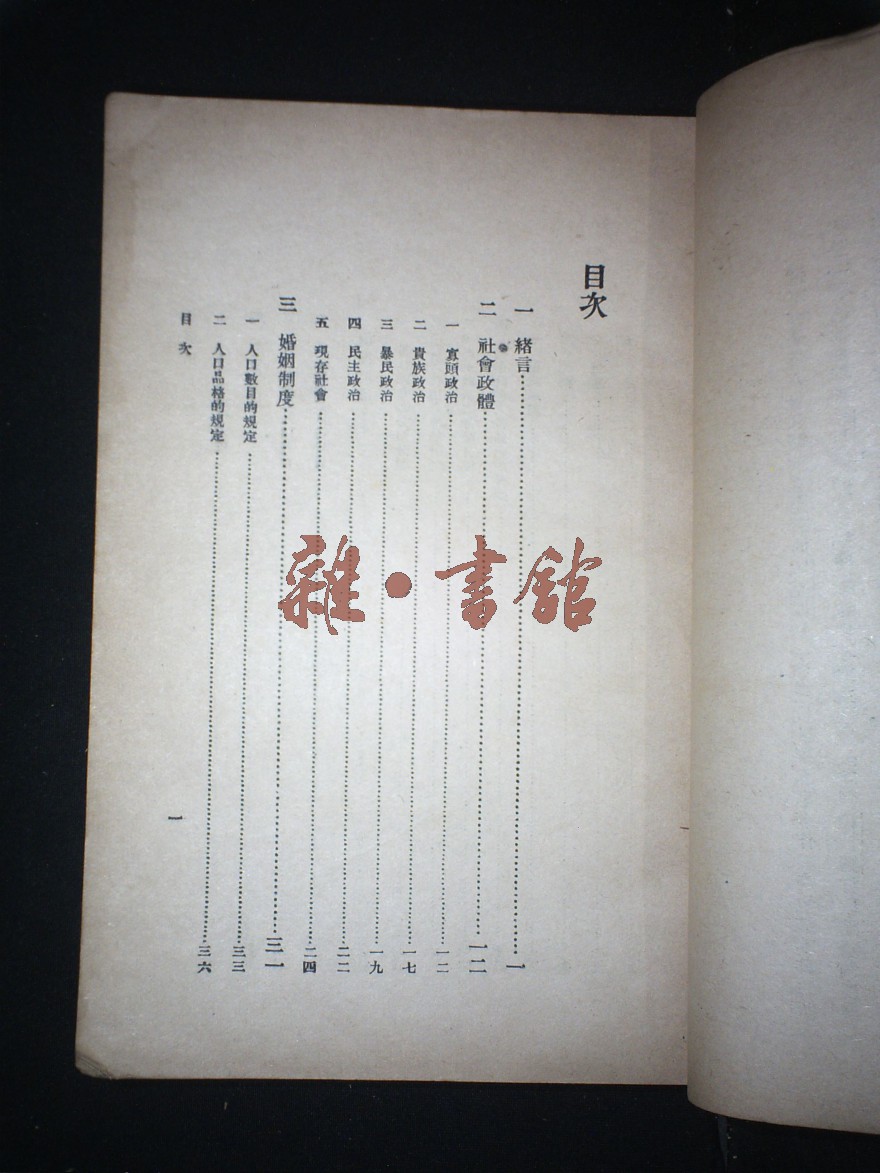 目次
一 緒言 一
二 社會政體 一二
一 寡頭政治 一二
二 貴族政治 一七
三 暴民政治 一九
四 民主政治 二二
五 現存社會 二四
三 婚姻制度 三一
一 人口數目的規定 三三
二 人口品格的規定 三六
目次
一
雜·書館